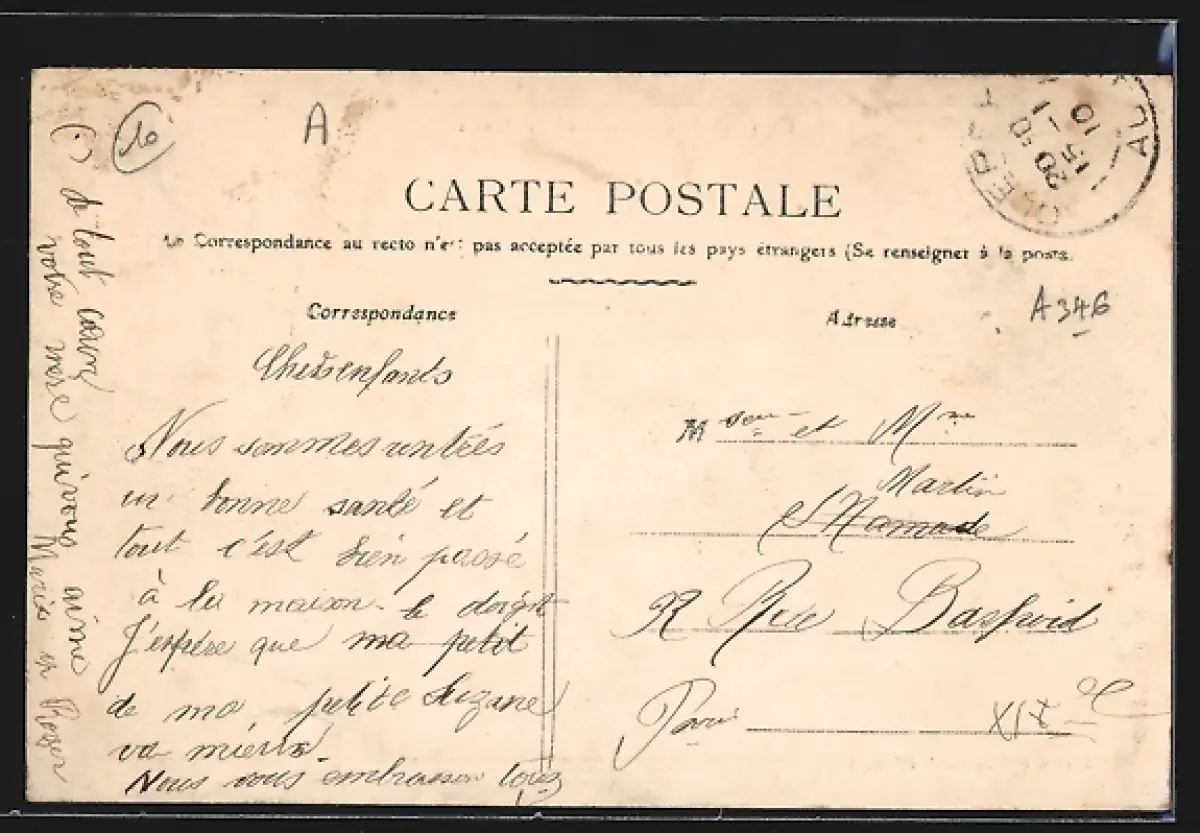 10
A
CARTE POSTALE
La Correspondance au recto n'est pas acceptée par tous les pays étrangers (Se renseigner à la poste.
Correspondance
Adresse
A 346
Chers enfants
Nous sommes rentrés
en bonne santé et
tout c'est bien passé
à la maison. le doigt
J'espère que ma petit
de ma petite Suzane
va mieux.
Nous vous embrasson tous
(.) de tout cœur
votre mere qui vous aime
Marie
Roger
Mme
et
Martin
Rue
Paris
XIXe
15 10
20 -1